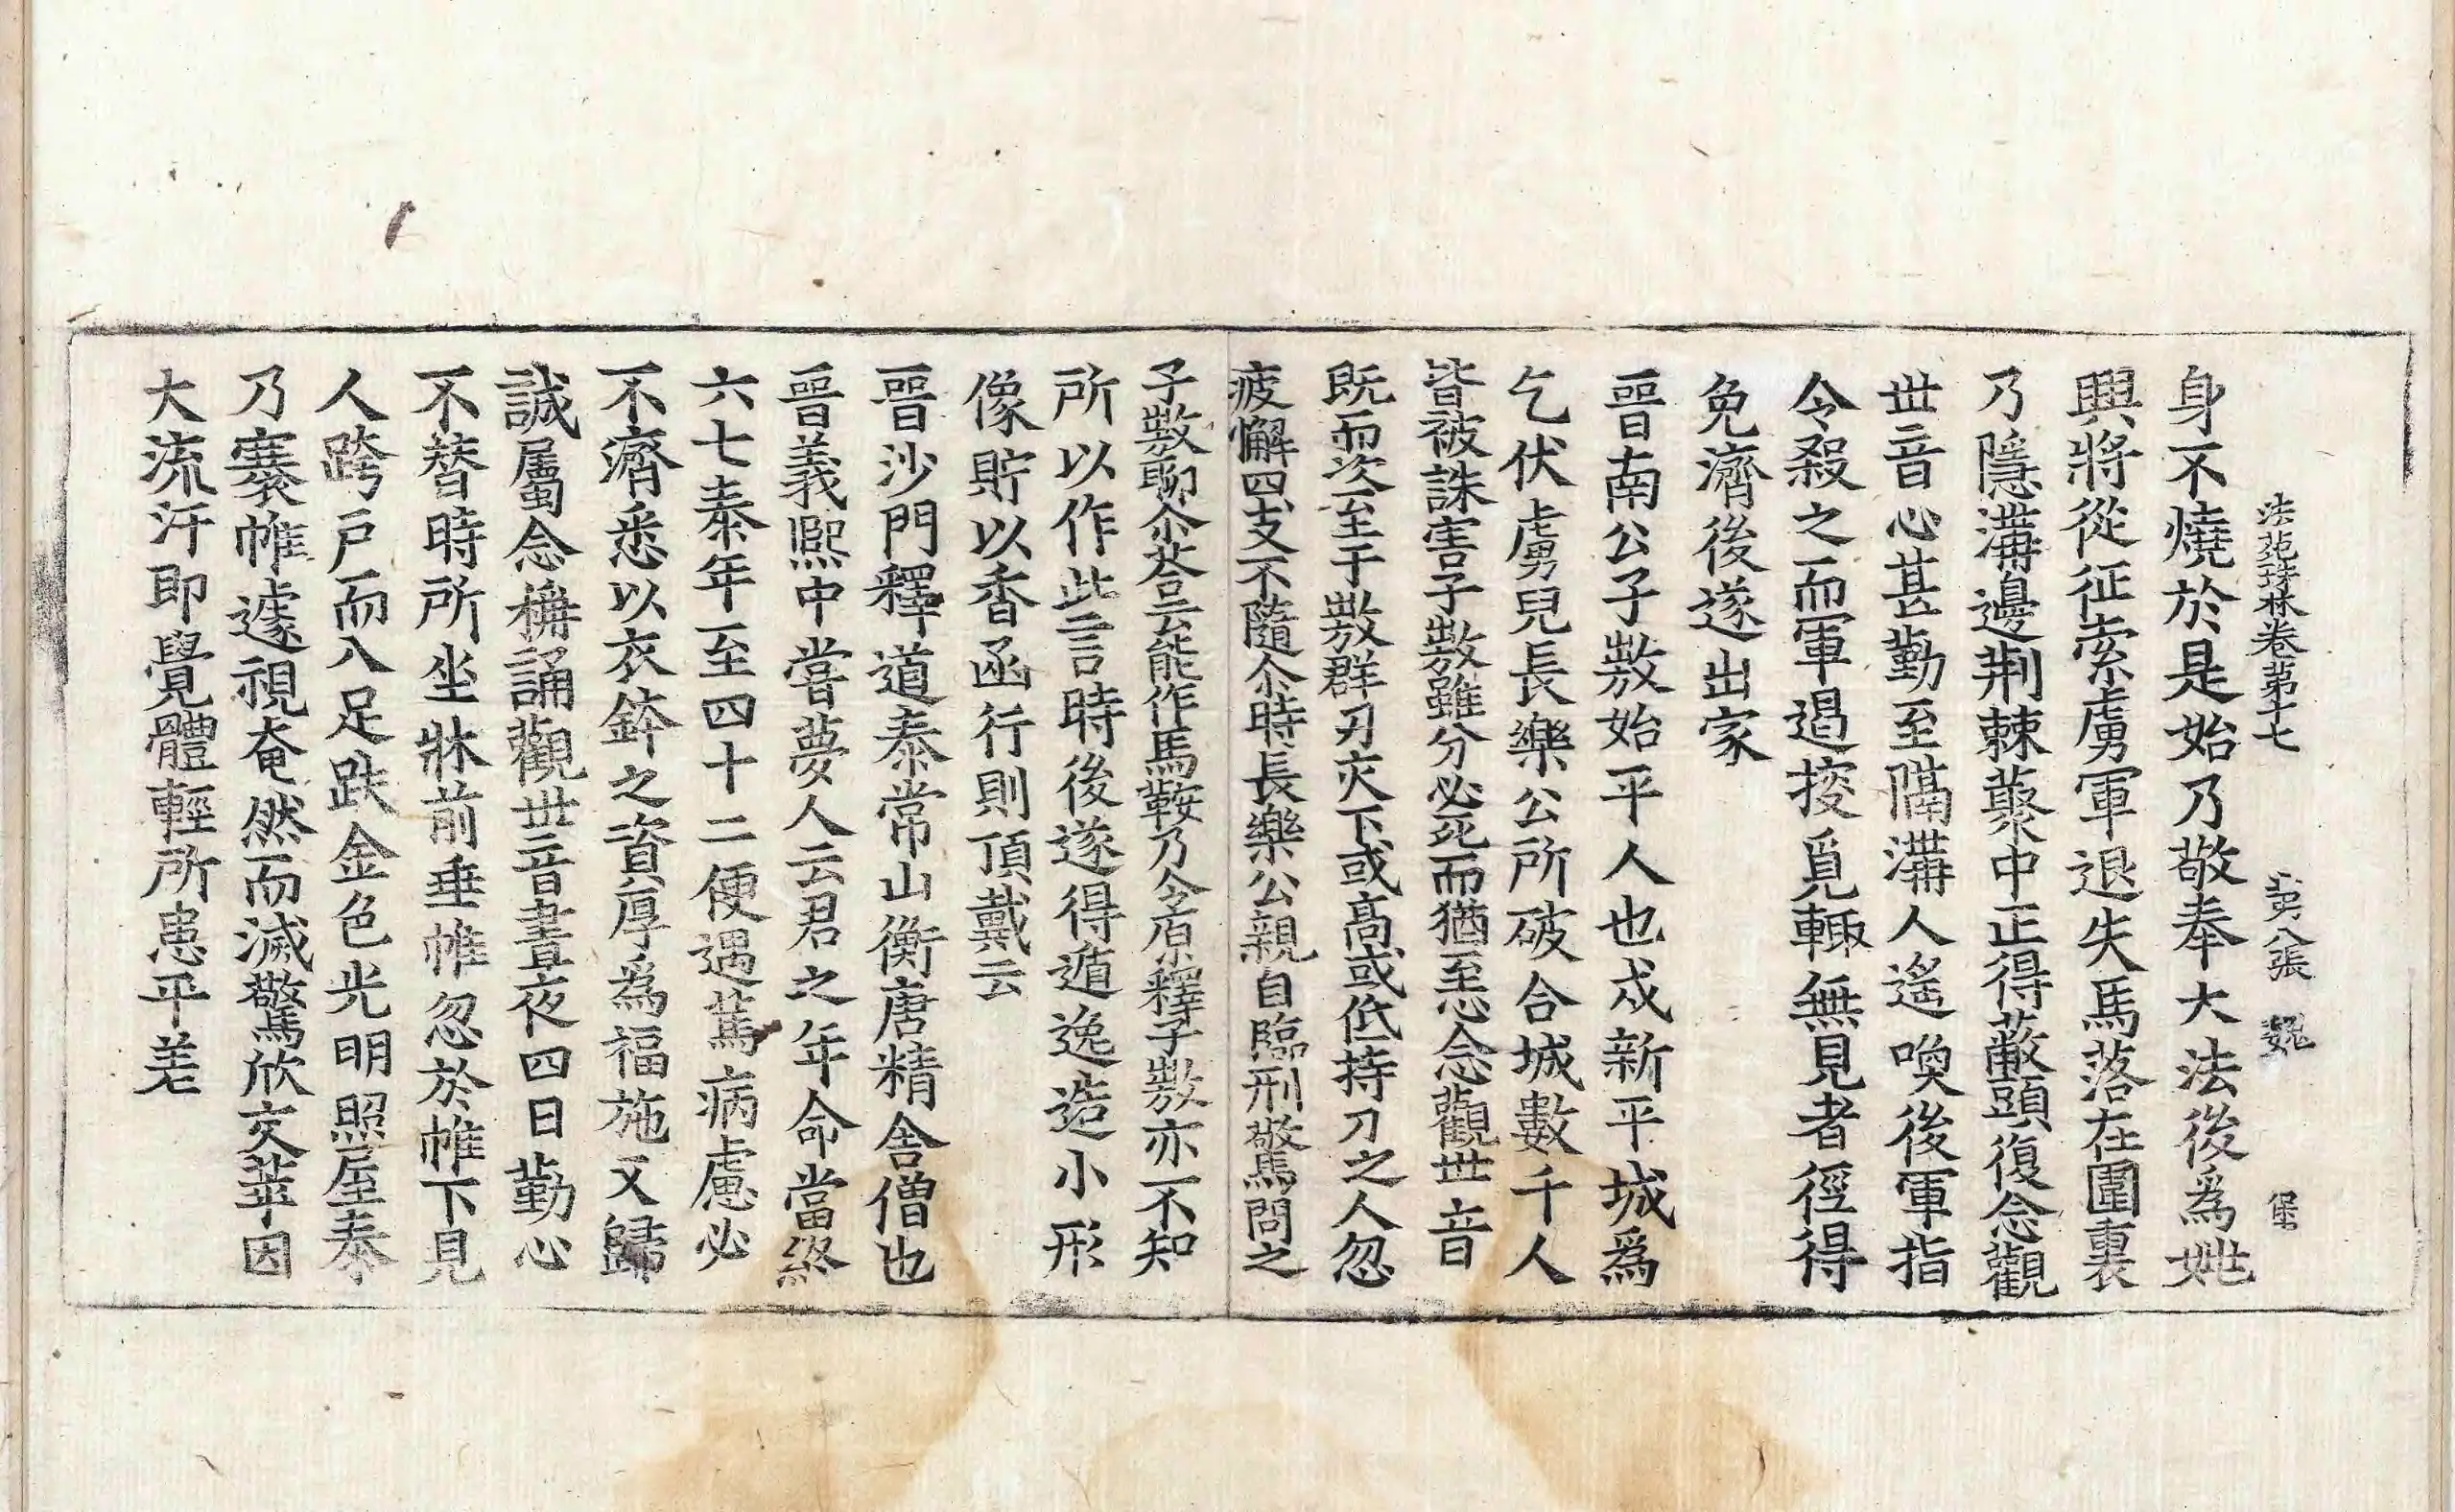 法苑珠林卷第十七 第八張 魏 堡
身不燒於是始乃敬奉大法後爲姚
興將從征索虜軍退失馬落在圍裏
乃隱溝邊荆棘藂中正得蔽頭復念觀
世音心甚勤至隔溝人遙喚後軍指
令殺之而軍遏搜覓輙無見者徑得
免濟後遂出家
晉南公子敖始平人也戍新平城爲
乞伏虜兒長樂公所破合城數千人
皆被誅害子敖雖分必死而猶至心念觀世音
既而次至于敖群刃交下或高或低持刀之人忽
疲懈四支不隨尒時長樂公親自臨刑驚問之
子敖聊尒荅云能作馬鞍乃令原釋子敖亦不知
所以作此言時後遂得遁逸造小形
像貯以香函行則頂戴云
晉沙門釋道泰常山衡唐精舍僧也
晉義熙中甞夢人云君之年命當終
六七泰年至四十二便遇篤病慮必
不濟悉以衣鉢之資厚爲福施又歸
誠屬念稱誦觀世音晝夜四日勤心
不替時所坐牀前垂帷忽於帷下見
人跨戶而入足趺金色光明照屋泰
乃褰帷遽視奄然而滅驚欣交萃因
大流汗即覺體輕所患平差